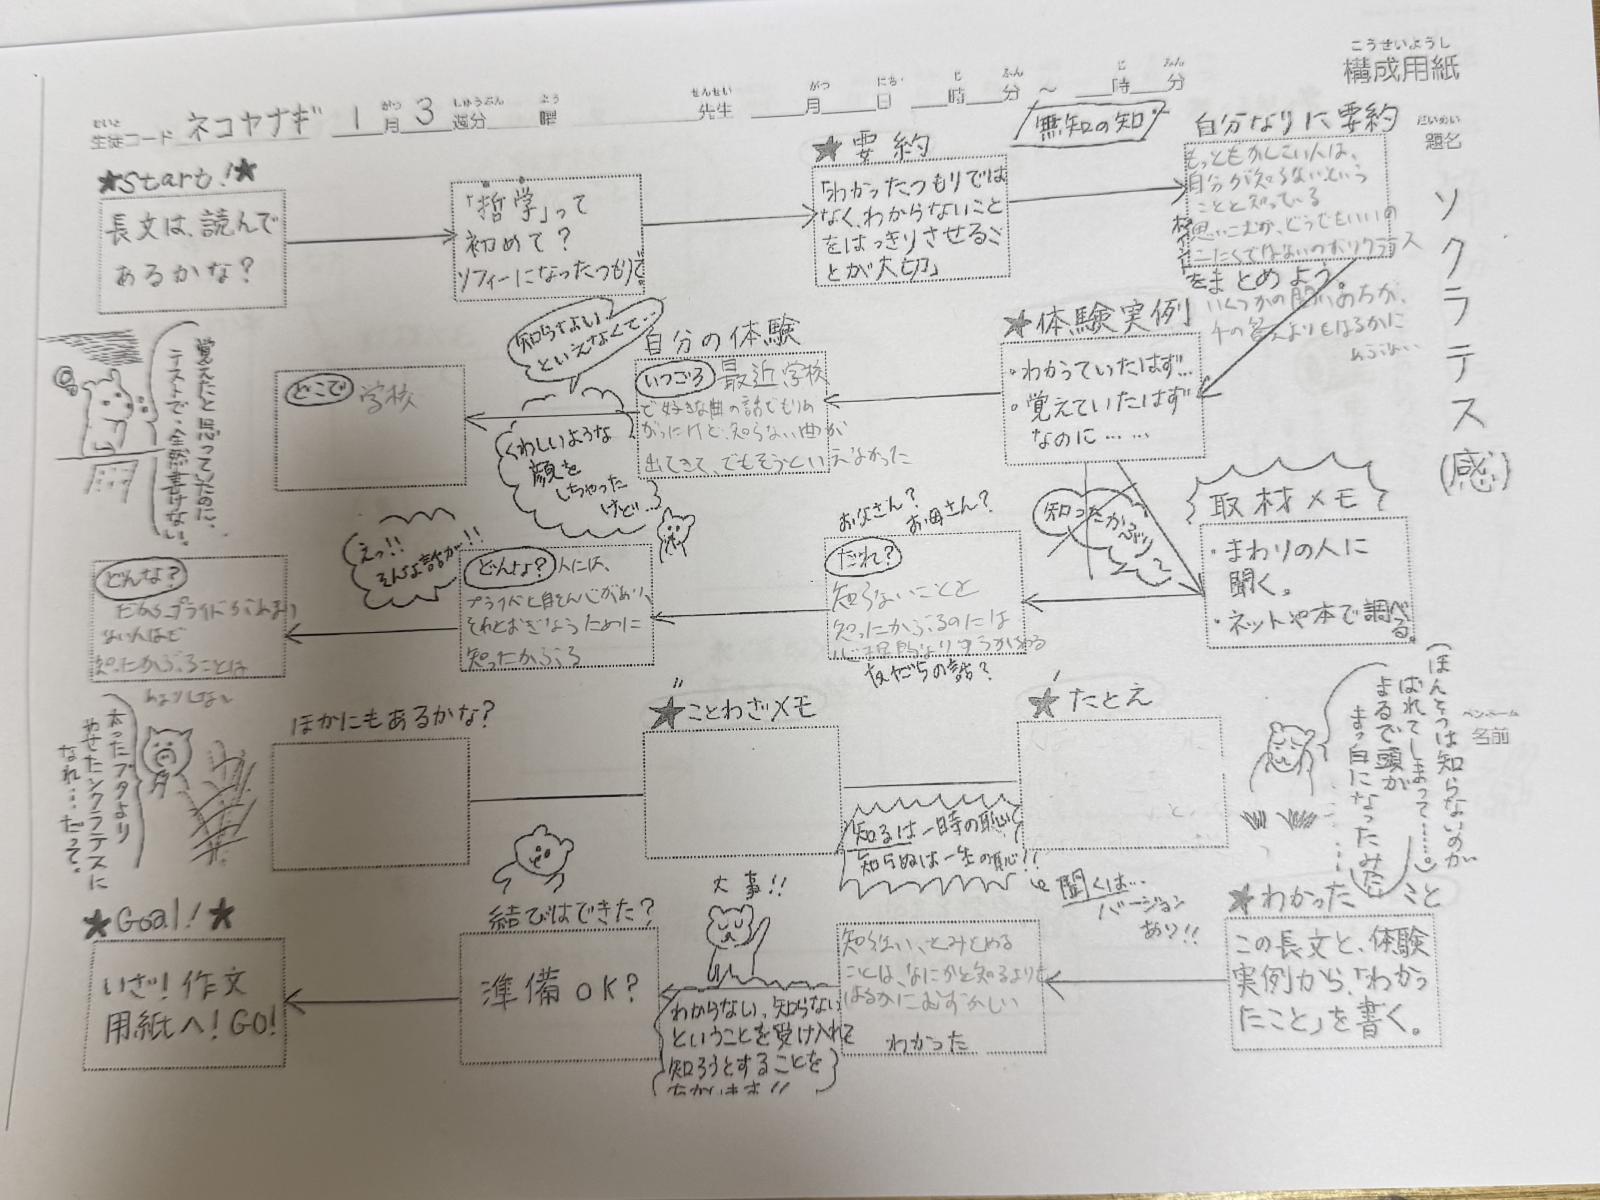 こうせいようし
構成用紙
せいと
がつ
しゅうぶん
よう
せんせい
がつ
にち
じ
ふん
じ
ふん
生徒コード ネコヤナギ 1月 3週分 曜 先生 月 日 時 分 ～ 時 分
だいめい
題名
ソクラテス(感)
ペンネーム
名前
★Start!★
長文は、読んで
あるかな?
「哲学」って
初めて?
ソフィーになったつもりで。
★要約
「わかったつもりでは
なく、わからないこと
をはっきりさせるこ
とが大切」
無知の知
自分なりに要約
もっともかしこい人は、
自分が知らないという
ことを知っている
ポイント
をまとめよう。
★体験実例
・わかっていたはず…
・覚えていたはず
なのに……
自分の体験
いつごろ 最近学校
で好きな曲の話でもりあ
がったけど、知らない曲が
出てきて、でもそうといえなかった
知らないい、
といえなくて…
くわしいような
顔を
しちゃった
けど…
どこで 学校
覚えたと思っていたのに、
テストで、全然書けない。
取材メモ
・まわりの人に
聞く。
・ネットや本で調べる。
知ったかぶり
お父さん?
お母さん?
だれ?
知らないことを
知ったかぶるのには
友だちの話?
どんな? 人には、
プライドと自そん心があり、
それをおぎなうために
知ったかぶる
えっ!!
そんな話が!!
どんな?
だからプライドがあまり
ない人ほど
知ったかぶることは
あまりしない
(ほんとうは知らないのが
ばれてしまって……
まるで頭が
まっ白になったみたい
★たとえ
★ことわざメモ
知るは一時の恥
知らぬは一生の恥!!
聞くは…
バージョン
あり!!
ほかにもあるかな?
太ったブタより
やせたソクラテスに
なれ…だって。
★わかったこと
この長文と、体験
実例から、「わかっ
たこと」を書く。
知らない、とみとめる
ことは、なにかを知るよりも
はるかにむずかしい
わかった
大事!!
わからない、知らない
ということを受け入れて
知ろうとすることを
結びはできた?
準備OK?
★Goal!★
いざ!作文
用紙へ!GO!